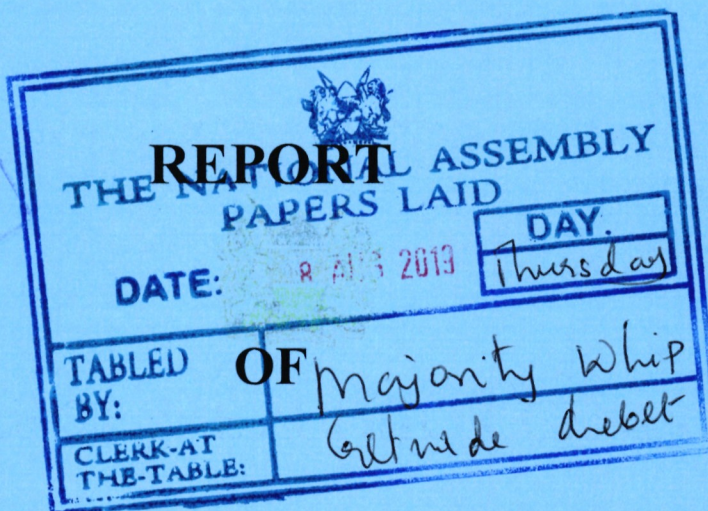 REPORT
THE NATIONAL ASSEMBLY
PAPERS LAID
DATE: 8 AUG 2019
DAY.
Thursday
TABLED BY: Majority Whip
OF
CLERK-AT THE-TABLE: Chebet